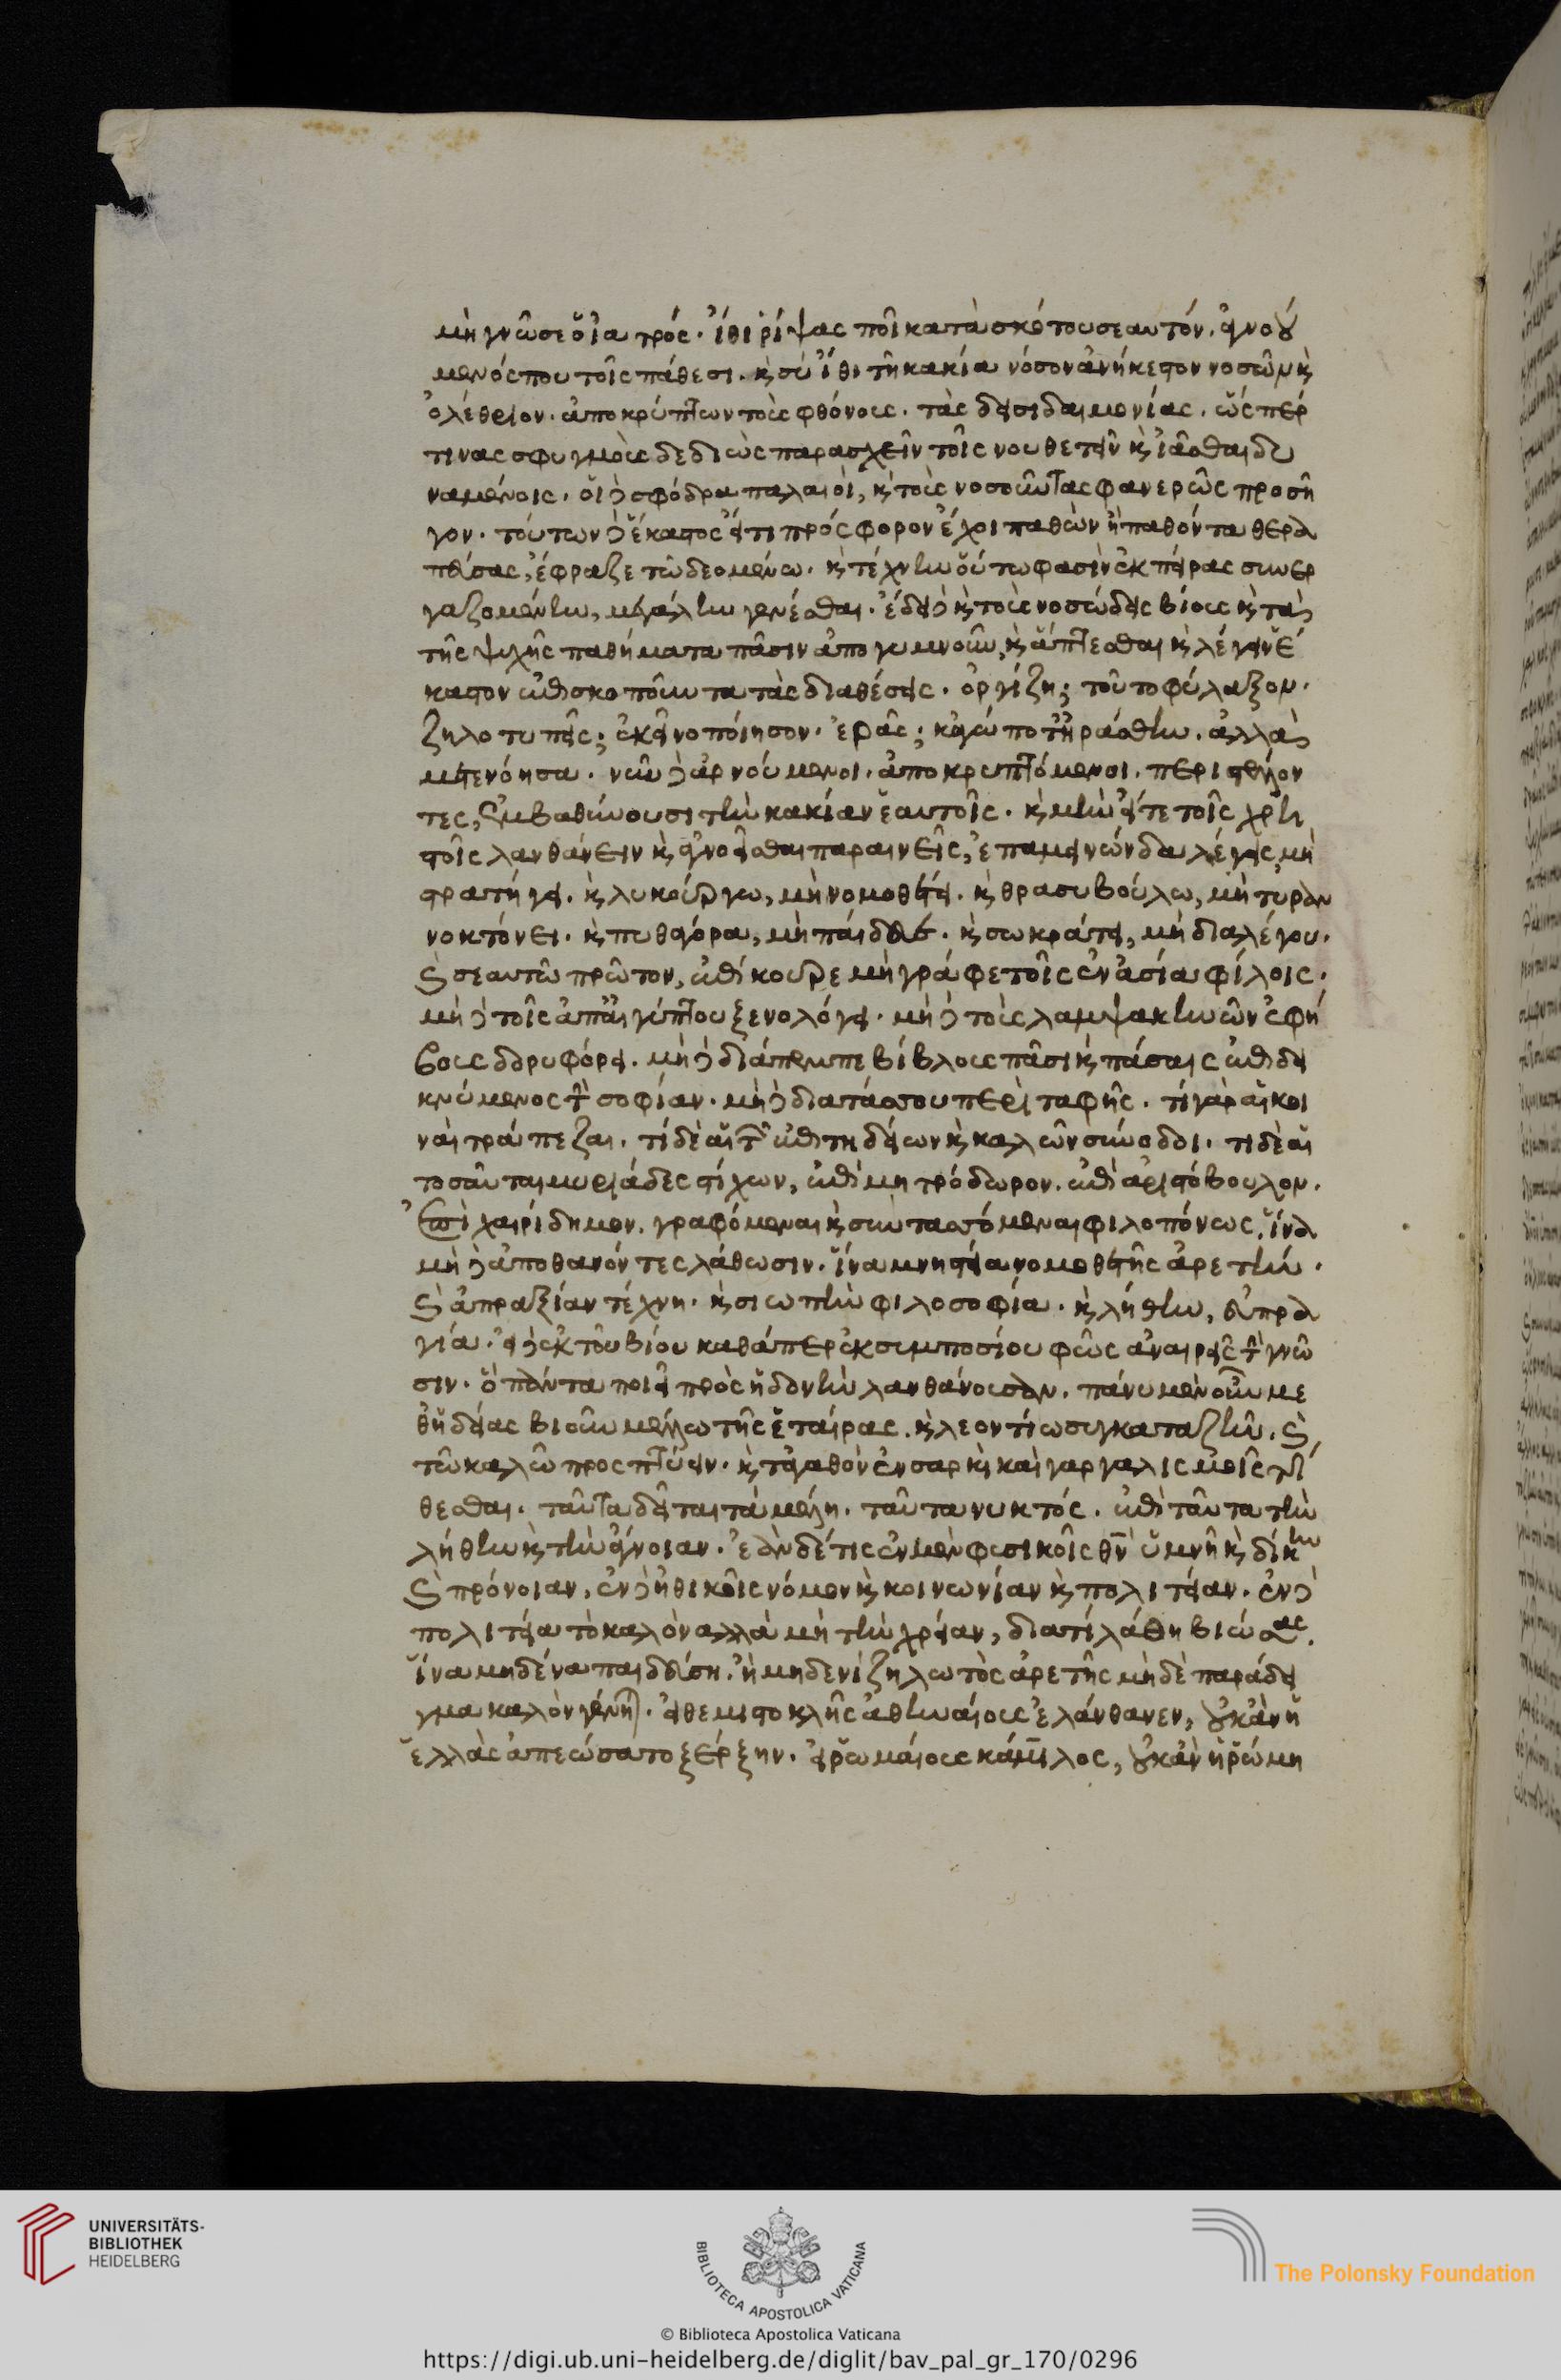 μὴ γνῶ σε ὁ ἰατρός. ἴθι ῥίψας ποῖ κατὰ σκότου σεαυτόν. ἀγνοού
μενός που τοῖς πάθεσι. καὶ σὺ ἴθι τῇ κακία νόσον ἀνήκεστον νοσῶν καὶ
ὀλέθριον. ἀποκρύπτων τοὺς φθόνους. τὰς δεισιδαιμονίας. ὥσπερ
τινας σφυγμοὺς δεδιὼς παρασχεῖν τοῖς νουθετεῖν καὶ ἰᾶσθαι δυ
ναμένοις. οἱ δὲ σφόδρα παλαιοὶ, καὶ τοὺς νοσοῦντας φανερῶς προσῆ
γον. τούτων δὲ ἕκαστος εἴ τι πρόσφορον ἔχοι παθὼν ἢ παθόντα θερα
πεύσας, ἔφραζε τῷ δεομένω. καὶ τέχνην οὕτω φασὶν ἐκ πείρας συνερ
γαζομένην, μεγάλην γενέσθαι. ἔδει δὲ καὶ τοὺς νοσώδεις βίους καὶ τὰ
τῆς ψυχῆς παθήματα πᾶσιν ἀπογυμνοῦν, καὶ ἅπτεσθαι καὶ λέγειν ἕ
καστον ἐπισκοποῦντα τὰς διαθέσεις. ὀργίζη; τοῦτο φύλαξον.
ζηλοτυπεῖς; ἐκεῖνο ποίησον. ἐρᾷς; κἀγώ ποτ᾽ ἠράσθην. ἀλλὰ
μετενόησα. νῦν δὲ ἀρνούμενοι. ἀποκρυπτόμενοι. περιστέλλον
τες, ἐμβαθύνουσι τὴν κακίαν ἑαυτοῖς. καὶ μὴν εἴ γε τοῖς χρη
στοῖς λανθάνειν καὶ ἀγνοεῖσθαι παραινεῖς, ἐπαμεινώνδα λέγεις, μὴ
στρατήγει. καὶ λυκούργω, μὴ νομοθέτει. καὶ θρασυβούλω, μὴ τυραν
νοκτόνει. καὶ πυθαγόρα, μὴ παίδευε. καὶ σωκράτει, μὴ διαλέγου.
καὶ σεαυτῷ πρῶτον, ἐπίκουρε μὴ γράφε τοῖς ἐν ἀσία φίλοις.
μὴ δὲ τοῖς ἀπ᾽ αἰγύπτου ξενολόγει. μὴ δὲ τοὺς λαμψακηνῶν ἐφή
βους δορυφόρει. μὴ δὲ διάπεμπε βίβλους πᾶσι καὶ πάσαις ἐπιδει
κνύμενος τὴν σοφίαν. μὴ δὲ διατάσσου περὶ ταφῆς. τί γὰρ αἱ κοι
ναὶ τράπεζαι. τί δὲ αἱ τῶν ἐπιτηδείων καὶ καλῶν σύνοδοι. τι δὲ αἱ
τοσαῦται μυριάδες στίχων, ἐπὶ μητρόδωρον. ἐπὶ ἀριστόβουλον.
ἐπὶ χαιρίδημον. γραφόμεναι καὶ συντασσόμεναι φιλοπόνως, ἵνα
μὴ δὲ ἀποθανόντες λάθωσιν. ἵνα μνηστεία νομοθετῆς ἀρετήν.
καὶ ἀπραξίαν τέχνη. καὶ σιωπὴν φιλοσοφία. καὶ λήθην, εὐπρα
γία. εἰ δὲ ἐκ τοῦ βίου καθάπερ ἐκ συμποσίου φῶς ἀναιρεῖς τὴν γνῶ
σιν. ὃ πάντα ποιεῖ πρὸς ἡδονὴν λανθάνουσαν. πάνυ μὲν οὖν με
θ᾽ ἡδείας βιοῦν μέλλω τῆς ἑταίρας. καὶ λεοντίω συγκαταζῆν. καὶ
τῷ καλῷ προσπτύειν. καὶ τἀγαθὸν ἐν σαρκὶ καὶ γαργαλισμοῖς τί
θεσθαι. ταῦτα δεῖται τὰ μέλη. ταῦτα νυκτός. ἐπὶ ταῦτα τὴν
λήθην καὶ τὴν ἄγνοιαν. ἐὰν δέ τις ἐν μὲν φυσικοῖς θν ὑμνῇ καὶ δίκην
καὶ πρόνοιαν, ἐν δὲ ἠθικοῖς νόμον καὶ κοινωνίαν καὶ πολιτείαν. ἐν δὲ
πολιτεία τὸ καλὸν ἀλλὰ μὴ τὴν χρείαν, διατί λάθη βιώσας.
ἵνα μηδένα παιδεύση. ἢ μηδενὶ ζηλωτὸς ἀρετῆς μὴ δὲ παράδει
γμα καλὸν γένηται. εἰ θεμιστοκλῆς ἀθηναίους ἐλάνθανεν, οὐκ ἂν ἡ
ἑλλὰς ἀπεώσατο ξέρξην. εἰ ῥωμαίους κάμιλλος, οὐκ ἂν ἡ ῥώμη
UNIVERSITÄTS-
BIBLIOTHEK
HEIDELBERG
BIBLIOTECA APOSTOLICA VATICANA
The Polonsky Foundation
© Biblioteca Apostolica Vaticana
https://digi.ub.uni-heidelberg.de/diglit/bav_pal_gr_170/0296